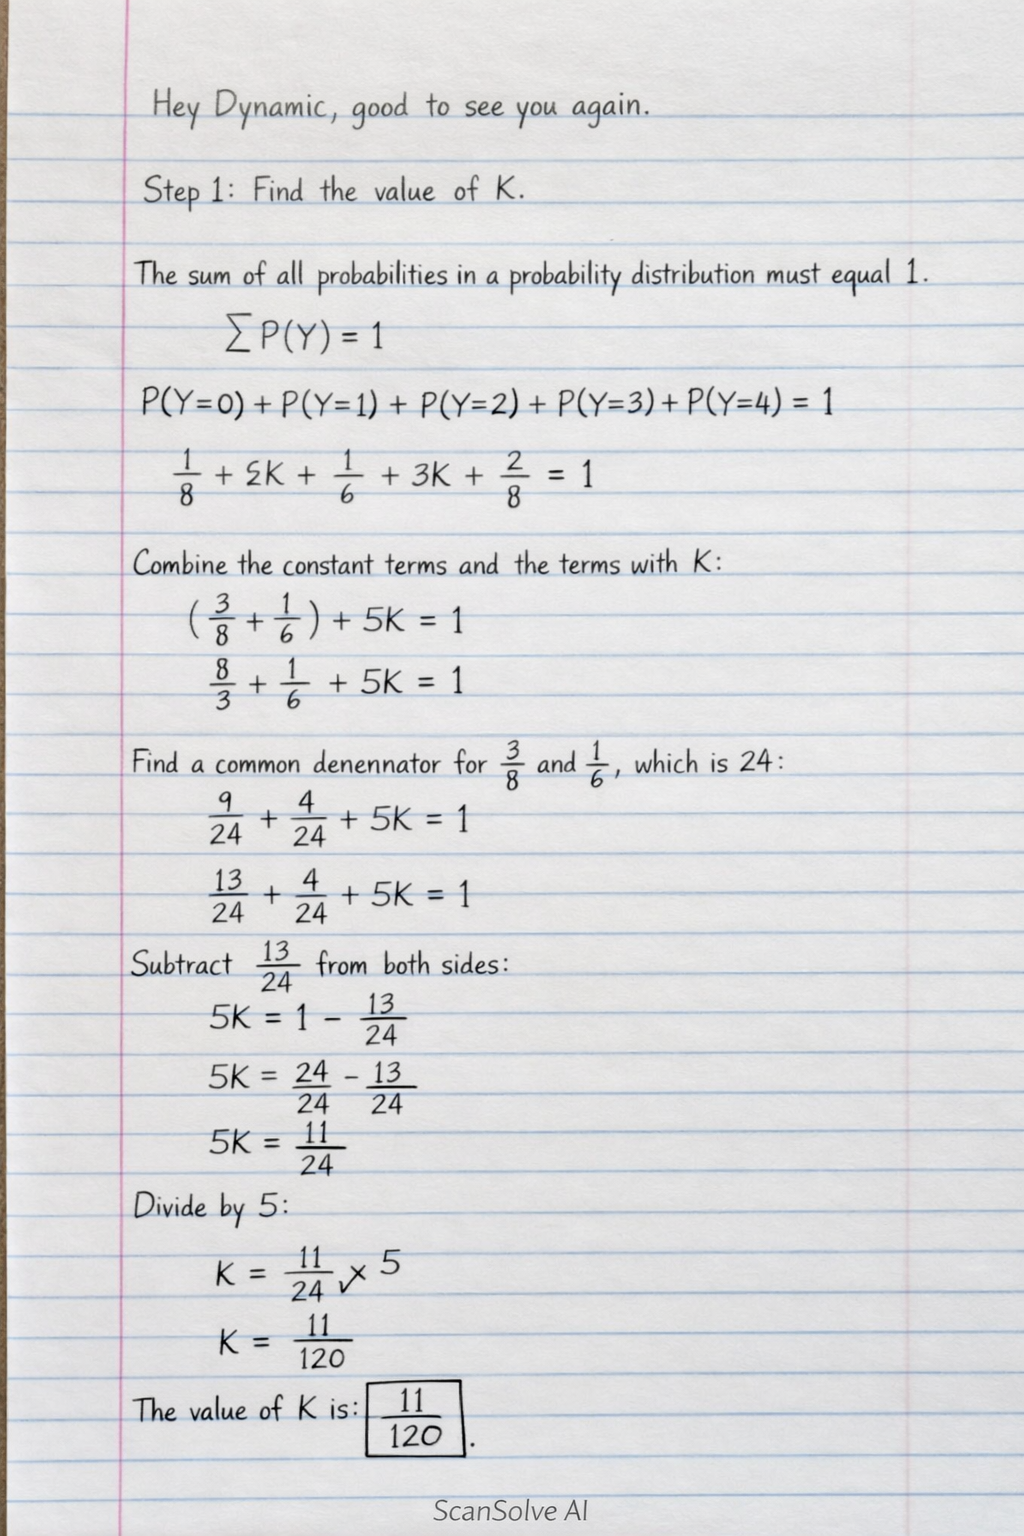 Hey Dynamic, good to see you again.
Step 1: Find the value of K.
The sum of all probabilities in a probability distribution must equal 1.
∑ P(Y) = 1
P(Y=0) + P(Y=1) + P(Y=2) + P(Y=3) + P(Y=4) = 1
1/8 + ΣK + 1/6 + 3K + 2/8 = 1
Combine the constant terms and the terms with K:
(3/8 + 1/6) + 5K = 1
8/3 + 1/6 + 5K = 1
Find a common denennator for 3/8 and 1/6, which is 24:
9/24 + 4/24 + 5K = 1
13/24 + 4/24 + 5K = 1
Subtract 13/24 from both sides:
5K = 1 - 13/24
5K = 24/24 - 13/24
5K = 11/24
Divide by 5:
K = 11/24 × 5
K = 11/120
The value of K is: 11/120.
ScanSolve AI